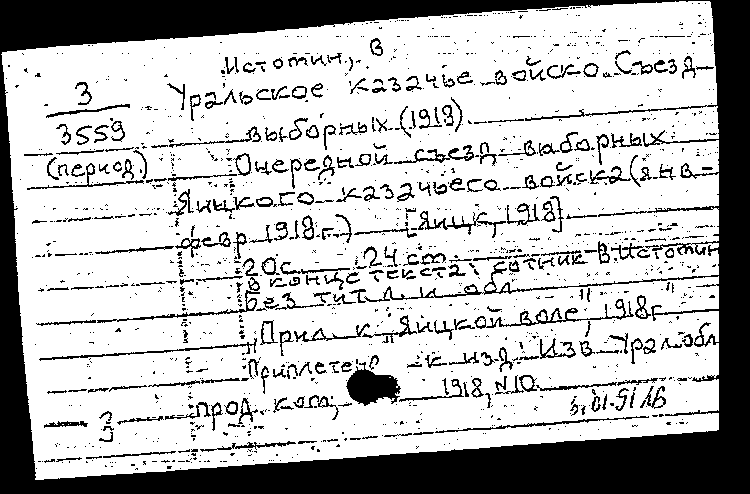 Истотин, В
3
3559
(период.)
Уральское казачье войско. Съезд
выборных (1918).
Очередной съезд выборных
Яицкого казачьего войска (янв-
февр 1918 г.) [Яицк, 1918]
20 с. 24 cm.
в конце текста: сотник В.Истотин
без тит л. и обл
„Прил. к „Яицкой воле", 1918г"
Приплетено к изд: Изв Урал.обл
прод. ком, 1918, N10.
3